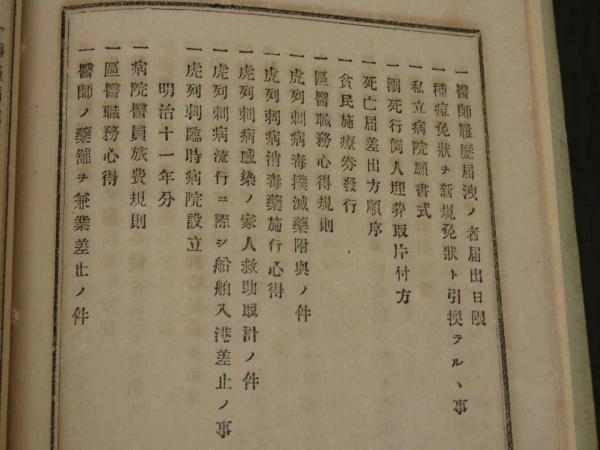 一醫師履歷屆洩ノ者屆出日限
一種痘免狀ヲ新規免狀ト引換ラルヽ事
一私立病院願書式
一溺死行倒人埋葬取片付方
一死亡屆差出方順序
一貧民施療券發行
一區醫職務心得規則
一虎列剌病毒撲滅藥附與ノ件
一虎列剌病消毒藥施行心得
一虎列剌病感染ノ家人救助取計ノ件
一虎列剌病流行ニ際シ船舶入港差止ノ事
一虎列剌臨時病院設立
明治十一年分
一病院醫員旅費規則
一區醫職務心得
一醫師ノ藥舖ヲ兼業差止ノ件